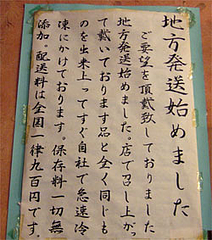 地方発送始めました
ご要望を頂戴致しておりました
地方発送始めました。店で召し上がっ
て戴いております品と全く同じも
のを出来上ってすぐ自社で急速冷
凍にかけております。保存料一切無
添加。配送料は全国一律九百円です。